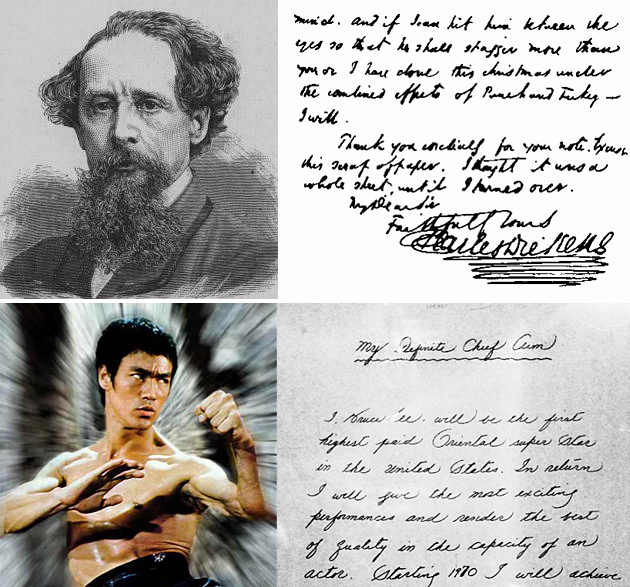 mind. And if I can hit him between the
eyes so that he shall stagger more than
you or I have done this Christmas under
the combined effects of Punch and Turkey —
I will.
Thank you cordially for your note. Excuse
this scrap of paper. I thought it was a
whole sheet, until I turned over.
My Dear Sir
Faithfully Yours
Charles Dickens
My Definite Chief Aim
I, Bruce Lee, will be the first
highest paid Oriental super star
in the United States. In return
I will give the most exciting
performances and render the best
of quality in the capacity of an
actor. Starting 1970 I will achieve